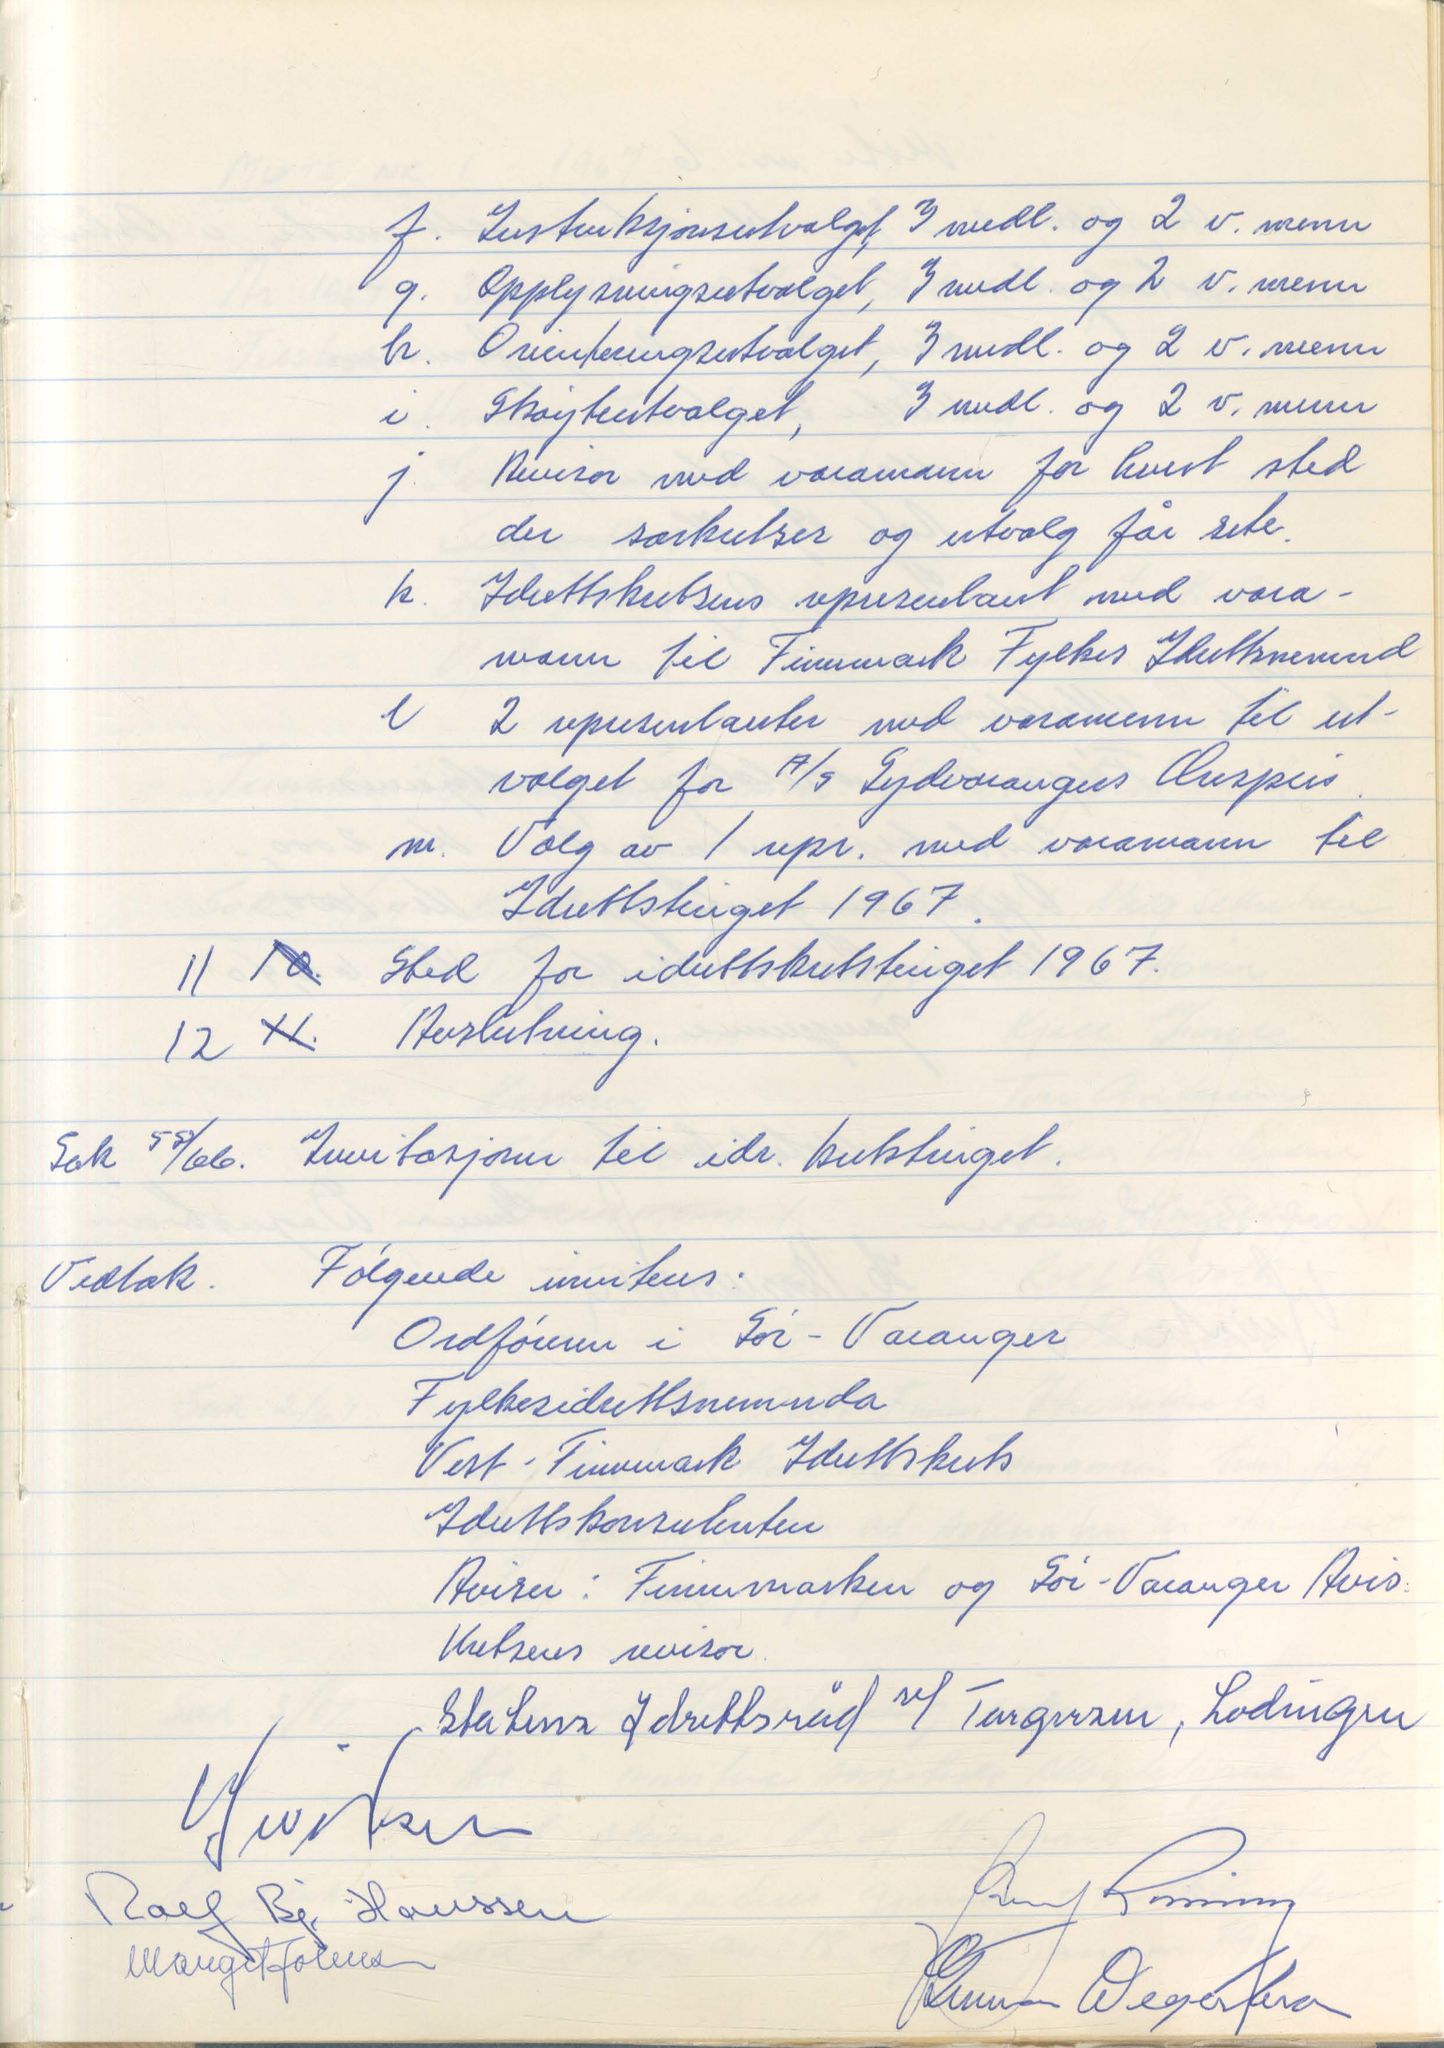 f. Instruksjonsutvalget, 3 medl. og 2 v. menn
g. Opplysningsutvalget, 3 medl. og 2 v. menn
h. Orienteringsutvalget, 3 medl. og 2 v. menn
i. Skøyteutvalget, 3 medl. og 2 v. menn
j. Revisor med varamann for hvert sted
der særkretser og utvalg får sete.
k. Idrettskretsens representant med vara-
mann til Finnmark Fylkes Idrettsnemnd
l 2 representanter med varamenn til ut-
valget for A/S Sydvarangers Ærespris.
m. Valg av 1 repr. med varamann til
Idrettstinget 1967.
11 10. Sted for idrettskretstinget 1967.
12 11. Avslutning.
Sak 58/66. Invitasjoner til idr. kretstinget.
Vedtak. Følgende inviteres:
Ordføreren i Sør-Varanger
Fylkesidrettsnemnda
Vest-Finnmark Idrettskrets
Idrettskonsulenten
Aviser: Finnmarken og Sør-Varanger Avis.
Kretsens revisor.
Statens Idrettsråd v/ Torgersen, Lødingen
Rolf Bj. Hanssen
Gunnar Wegersteen